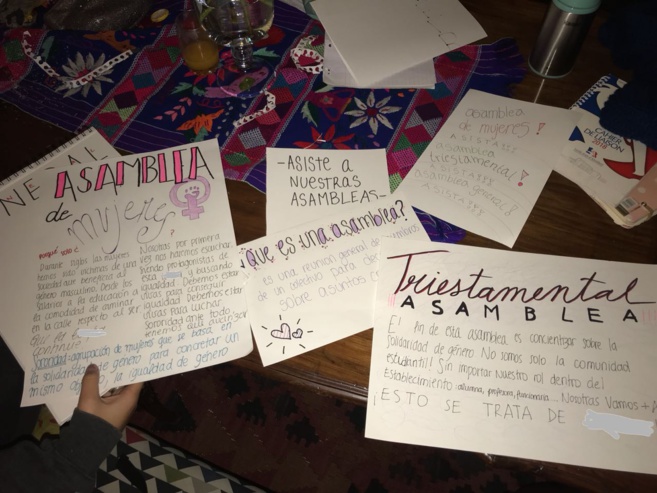 ASAMBLEA
de
mujeres
Durante siglos las mujeres
hemos sido victimas de una
género masculino. Desde los
la comodidad de caminar
en la calle respecto al ser
Nosotras por primera
vez nos haremos escuchar,
siendo protagonistas de
esta y buscando
igualdad. Debemos estar
unidas para conseguir
igualdad. Debemos estar
unidas para luchar.
Sororidad ante todo
Sororidad: agrupación de mujeres que se basa en
la solidaridad de género para concretar un
mismo la igualdad de género
-ASISTE A
NUESTRAS
ASAMBLEAS-
¿Que es una asamblea?
es una reunión general de miembros
de un colectivo para
sobre asuntos
asamblea
de mujeres!
ASISTASSS
asamblea
triestamental!
ASISTASSS
asamblea general!
ASISTASSS
CAHIER
2018
Triestamental
ASAMBLEA
El fin de esta asamblea, es concientizar sobre la
solidaridad de género. No somos solo la comunidad
estudiantil! Sin importar nuestro rol dentro del
Establecimiento: alumna, profesora, funcionaria... Nosotras Vamos +
¡ESTO SE TRATA DE